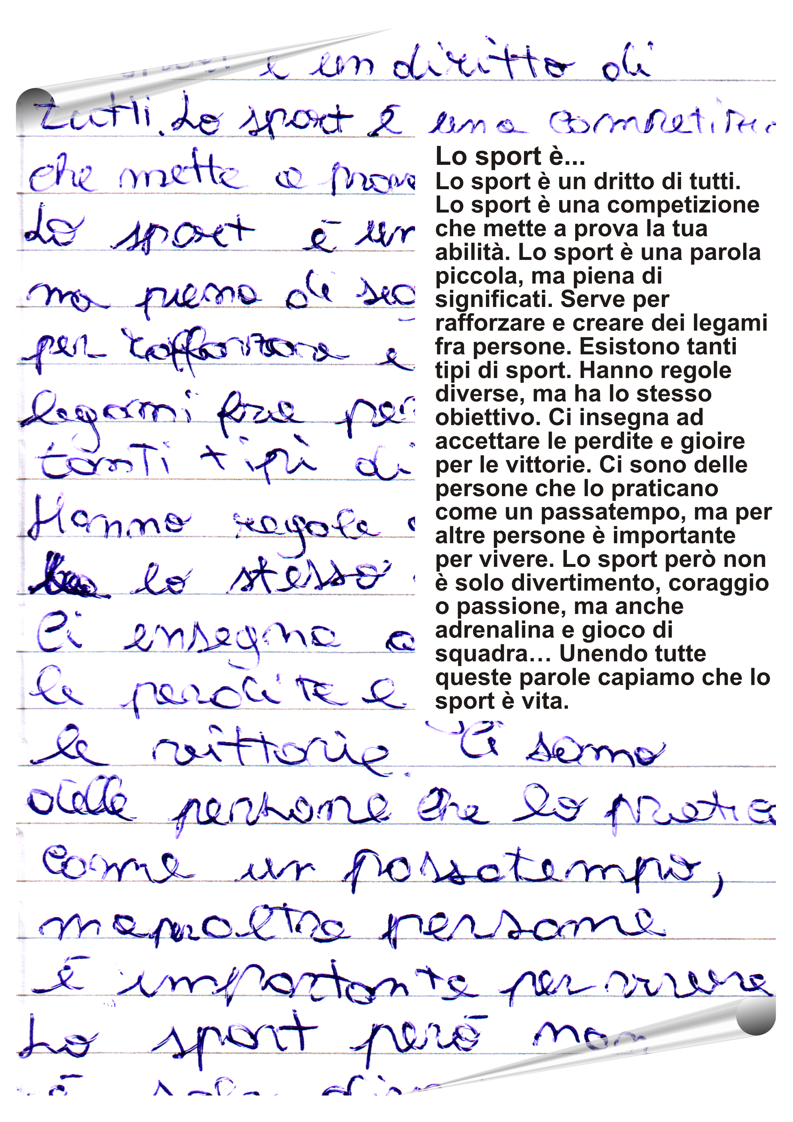 è un diritto di
tutti. Lo sport è una
che mette a prova
Lo sport è un
ma piena di sig
per rafforzare e
legami fra per
tanti tipi di
Hanno regole
lo stesso
Ci insegna a
le perdite e
le vittorie. Ci sono
delle persone che lo pratica
come un passatempo,
ma per altre persone
è importante per vivere
Lo sport però non
è solo
Lo sport è...
Lo sport è un dritto di tutti.
Lo sport è una competizione
che mette a prova la tua
abilità. Lo sport è una parola
piccola, ma piena di
significati. Serve per
rafforzare e creare dei legami
fra persone. Esistono tanti
tipi di sport. Hanno regole
diverse, ma ha lo stesso
obiettivo. Ci insegna ad
accettare le perdite e gioire
per le vittorie. Ci sono delle
persone che lo praticano
come un passatempo, ma per
altre persone è importante
per vivere. Lo sport però non
è solo divertimento, coraggio
o passione, ma anche
adrenalina e gioco di
squadra… Unendo tutte
queste parole capiamo che lo
sport è vita.